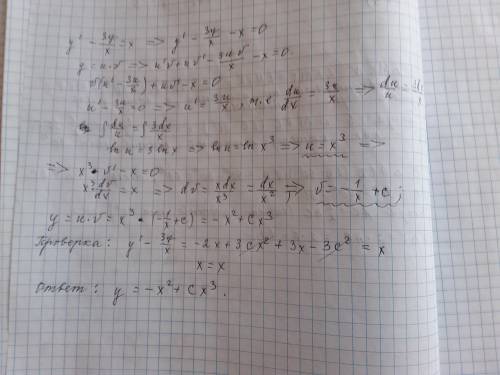 y' - 3y/x = x => y' - 3y/x - x = 0
y = u·v => u'v + uv' - 3uv/x - x = 0
v(u' - 3u/x) + uv' - x = 0
u' - 3u/x = 0 => u' = 3u/x, т.к du/dx = 3u/x =>
∫ du/u = ∫ 3dx/x
ln u = 3 ln x => ln u = ln x³ => u = x³ =>
=> x³ · v' - x = 0
x³ dv/dx = x => dv = xdx/x³ = dx/x² => v = -1/x + c;
y = u·v = x³ · (-1/x + c) = -x² + cx³
Проверка: y' - 3y/x = -2x + 3cx² + 3x - 3c² = x
x = x
Ответ: y = -x² + cx³.